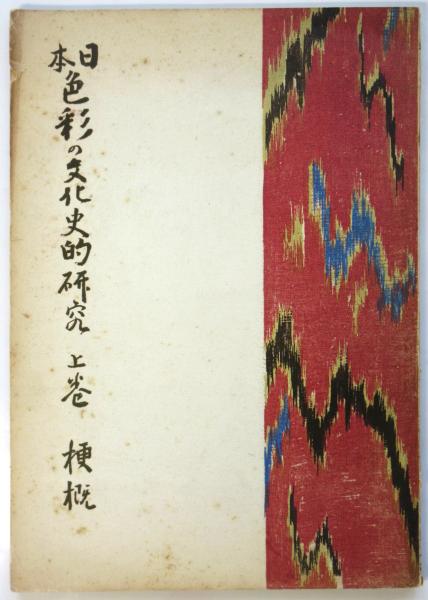 日本色彩の文化史的研究 上巻 梗概